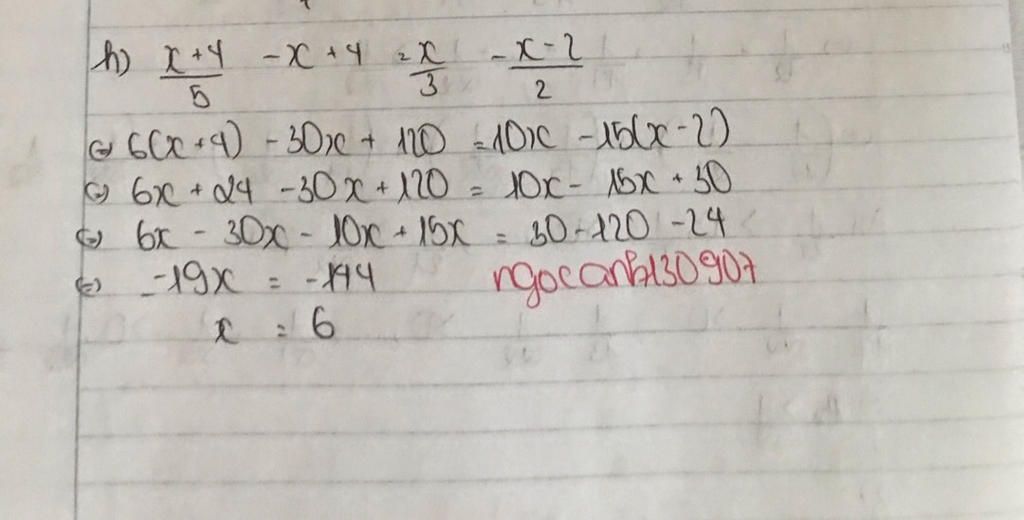 h) (x+4)/5 - x + 4 = x/3 - (x-2)/2
⇔ 6(x+4) - 30x + 120 = 10x - 15(x-2)
⇔ 6x + 24 - 30x + 120 = 10x - 15x + 30
⇔ 6x - 30x - 10x + 15x = 30 - 120 - 24
⇔ -19x = -114
ngocanh130907
x = 6